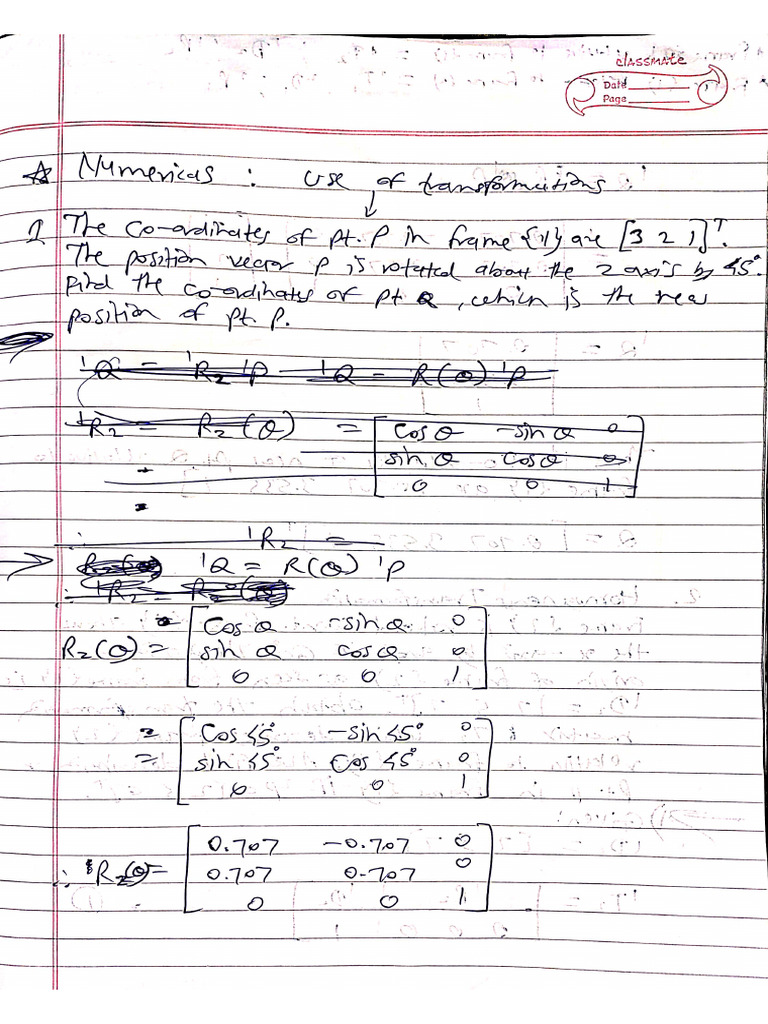 classmate
Date
Page
☆ Numericas : use of transformations :
1 The co-ordinates of pt. P in frame {1} are [3 2 1]ᵀ.
The position vector P is rotated about the Z axis by 45°.
Find the co-ordinates of pt Q, which is the new
position of pt. P.
¹Q = ¹R₂ ¹P ¹Q = R(θ) ¹P
¹R₂ = R₂(θ) = [cos θ -sin θ 0
sin θ cos θ 0
0 0 1]
∴ ¹R₂ =
→ ¹Q = R(θ) ¹P
∴ ¹R₂ = R₂(θ)
R_Z(θ) = [cos θ -sin θ 0
sin θ cos θ 0
0 0 1]
= [cos 45° -sin 45° 0
= sin 45° cos 45° 0
0 0 1]
∴ R_Z(θ) = [0.707 -0.707 0
0.707 0.707 0
0 0 1]